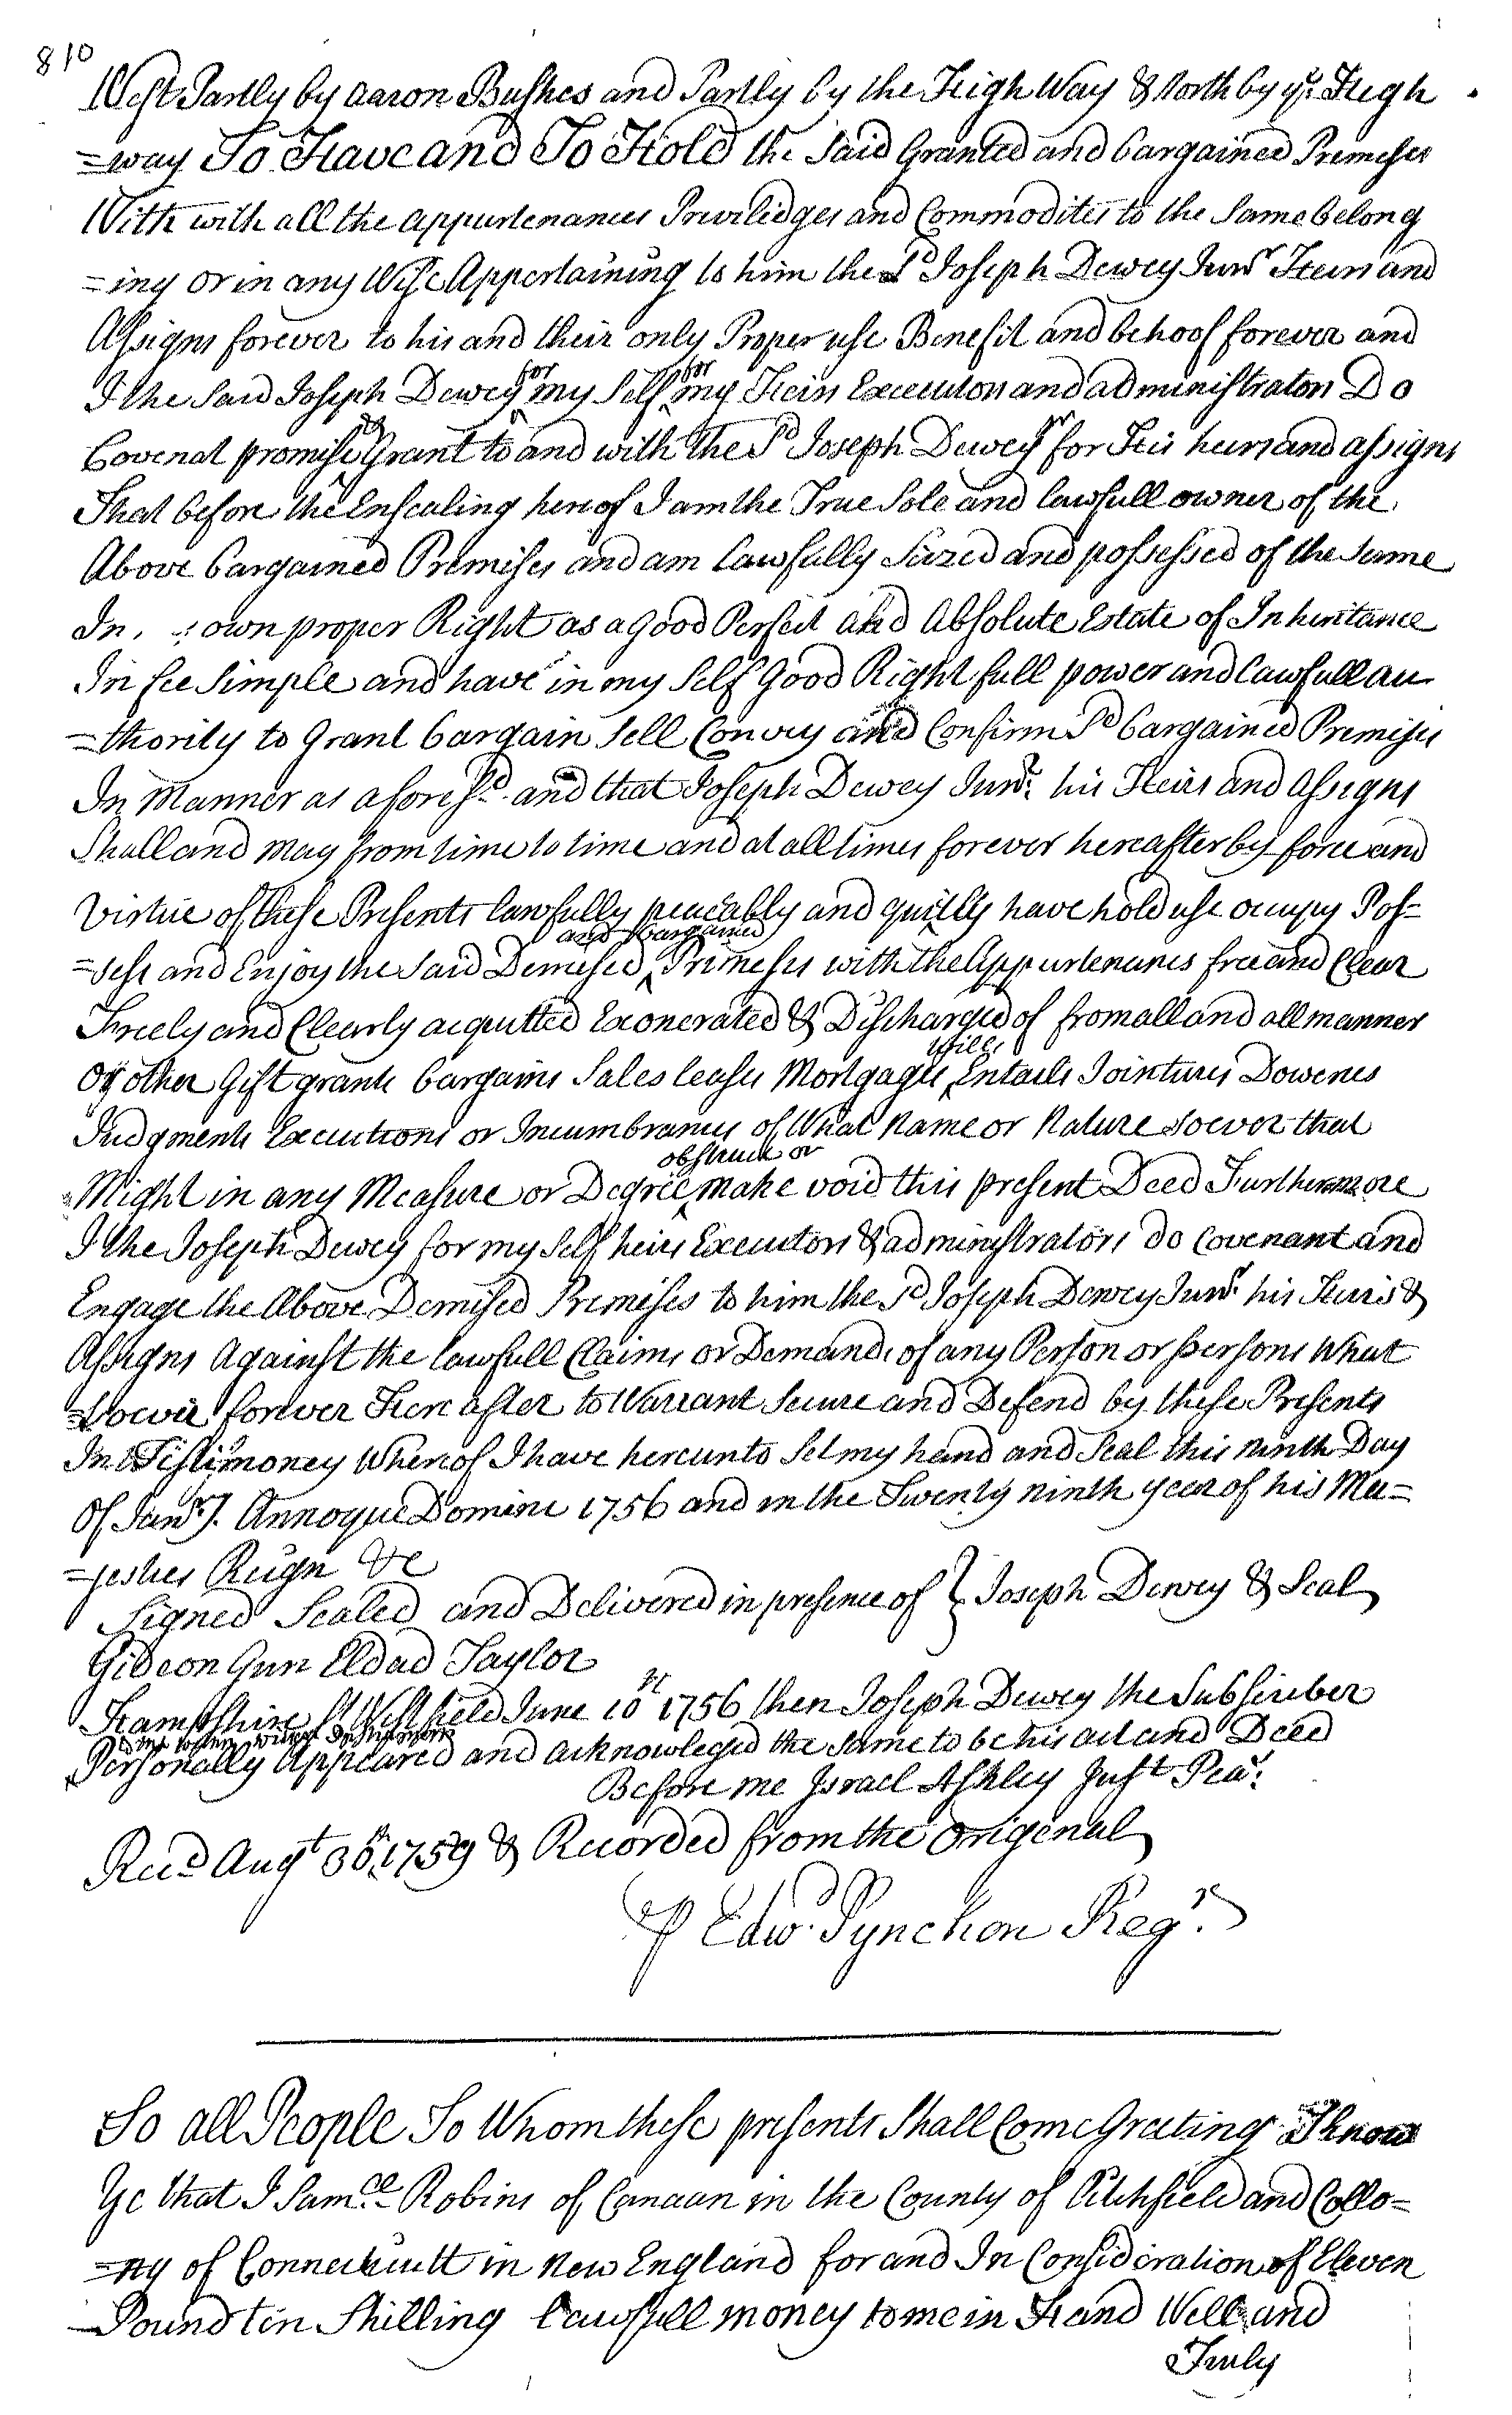 810
West Partly by Aaron Bushes and Partly by the High Way & North by ye High
=way To Have and To Hold the Said Granted and bargained Premeses
With with all the appurtenances Priviledges and Commodites to the Same belong
=ing or in any Wise Appertaining to him the Sd Joseph Dewey Junr Heirs and
Assigns forever to his and their only Proper use Benefit and behoof forever and
for for
I the Said Joseph Dewey my Self my Heirs Executors and administrators Do
Covenat promise & Grant to and with the Sd Joseph Dewey Jr for His heirs and assigns
That before the Ensealing hereof I am the True Sole and lawfull owner of the
Above bargained Premises and am lawfully Siezed and possessed of the Same
In own proper Right as a Good Perfect and Absolute Estate of Inheritance
In fee Simple and have in my Self Good Right full power and lawfull au
=thority to Grant bargain Sell Convey and Confirm Sd bargained Premises
In Manner as aforesd and that Joseph Dewey Junr his Heirs and Assigns
Shall and may from time to time and at all times forever hereafter by force and
Virtue of these Presents lawfully peaceably and quietly have hold use occupy Pos=
and Bargained
=sess and Enjoy the Said Demised Premeses with the Appurtenances free and Clear
Freely and Clearly acquitted Exonerated & Discharged of from all and all manner
Wills
Of other Gift grants bargains Sales leases Mortgages Entails Jointures Doweries
Judgments Executions or Incumbrances of What Name or Nature soever that
obstruct or
Might in any Measure or Degree make void this present Deed Furthermore
I the Joseph Dewey for my Self heirs Executors & administrators do Covenant and
Engage the Above Demised Premises to him the Sd Joseph Dewey Junr his Heirs &
Assigns Against the lawfull Claims or Demands of any Person or persons What
=soever forever Hereafter to Warrant Secure and Defend by these Presents
In Testimoney Whereof I have hereunto Set my hand and Seal this ninth Day
Of Janry. Annoque Domini 1756 and in the Twenty ninth year of his Ma=
=jesties Reign &c
Signed Sealed and Delivered in presence of } Joseph Dewey & Seal
Gideon Gun Eldad Taylor
Hampshire Ss Westfield June 10th 1756 then Joseph Dewey the Subscriber
to the within writen Instrument
Personally Appeared and acknowleged the Same to be his act and Deed
Before me Israel Ashley Just Peace
Recd Augt 30th 1759 & Recorded from the Origenal
P Edw. Pynchon Regr.
To all People To Whom these presents Shall Come Greeting Know
Ye that I Samell Robins of Canaan in the County of Litchfield and Collo=
=ny of Connecticutt in New England for and In Consideration of Eleven
Pound ten Shilling lawfull money to me in Hand Well and
Truly